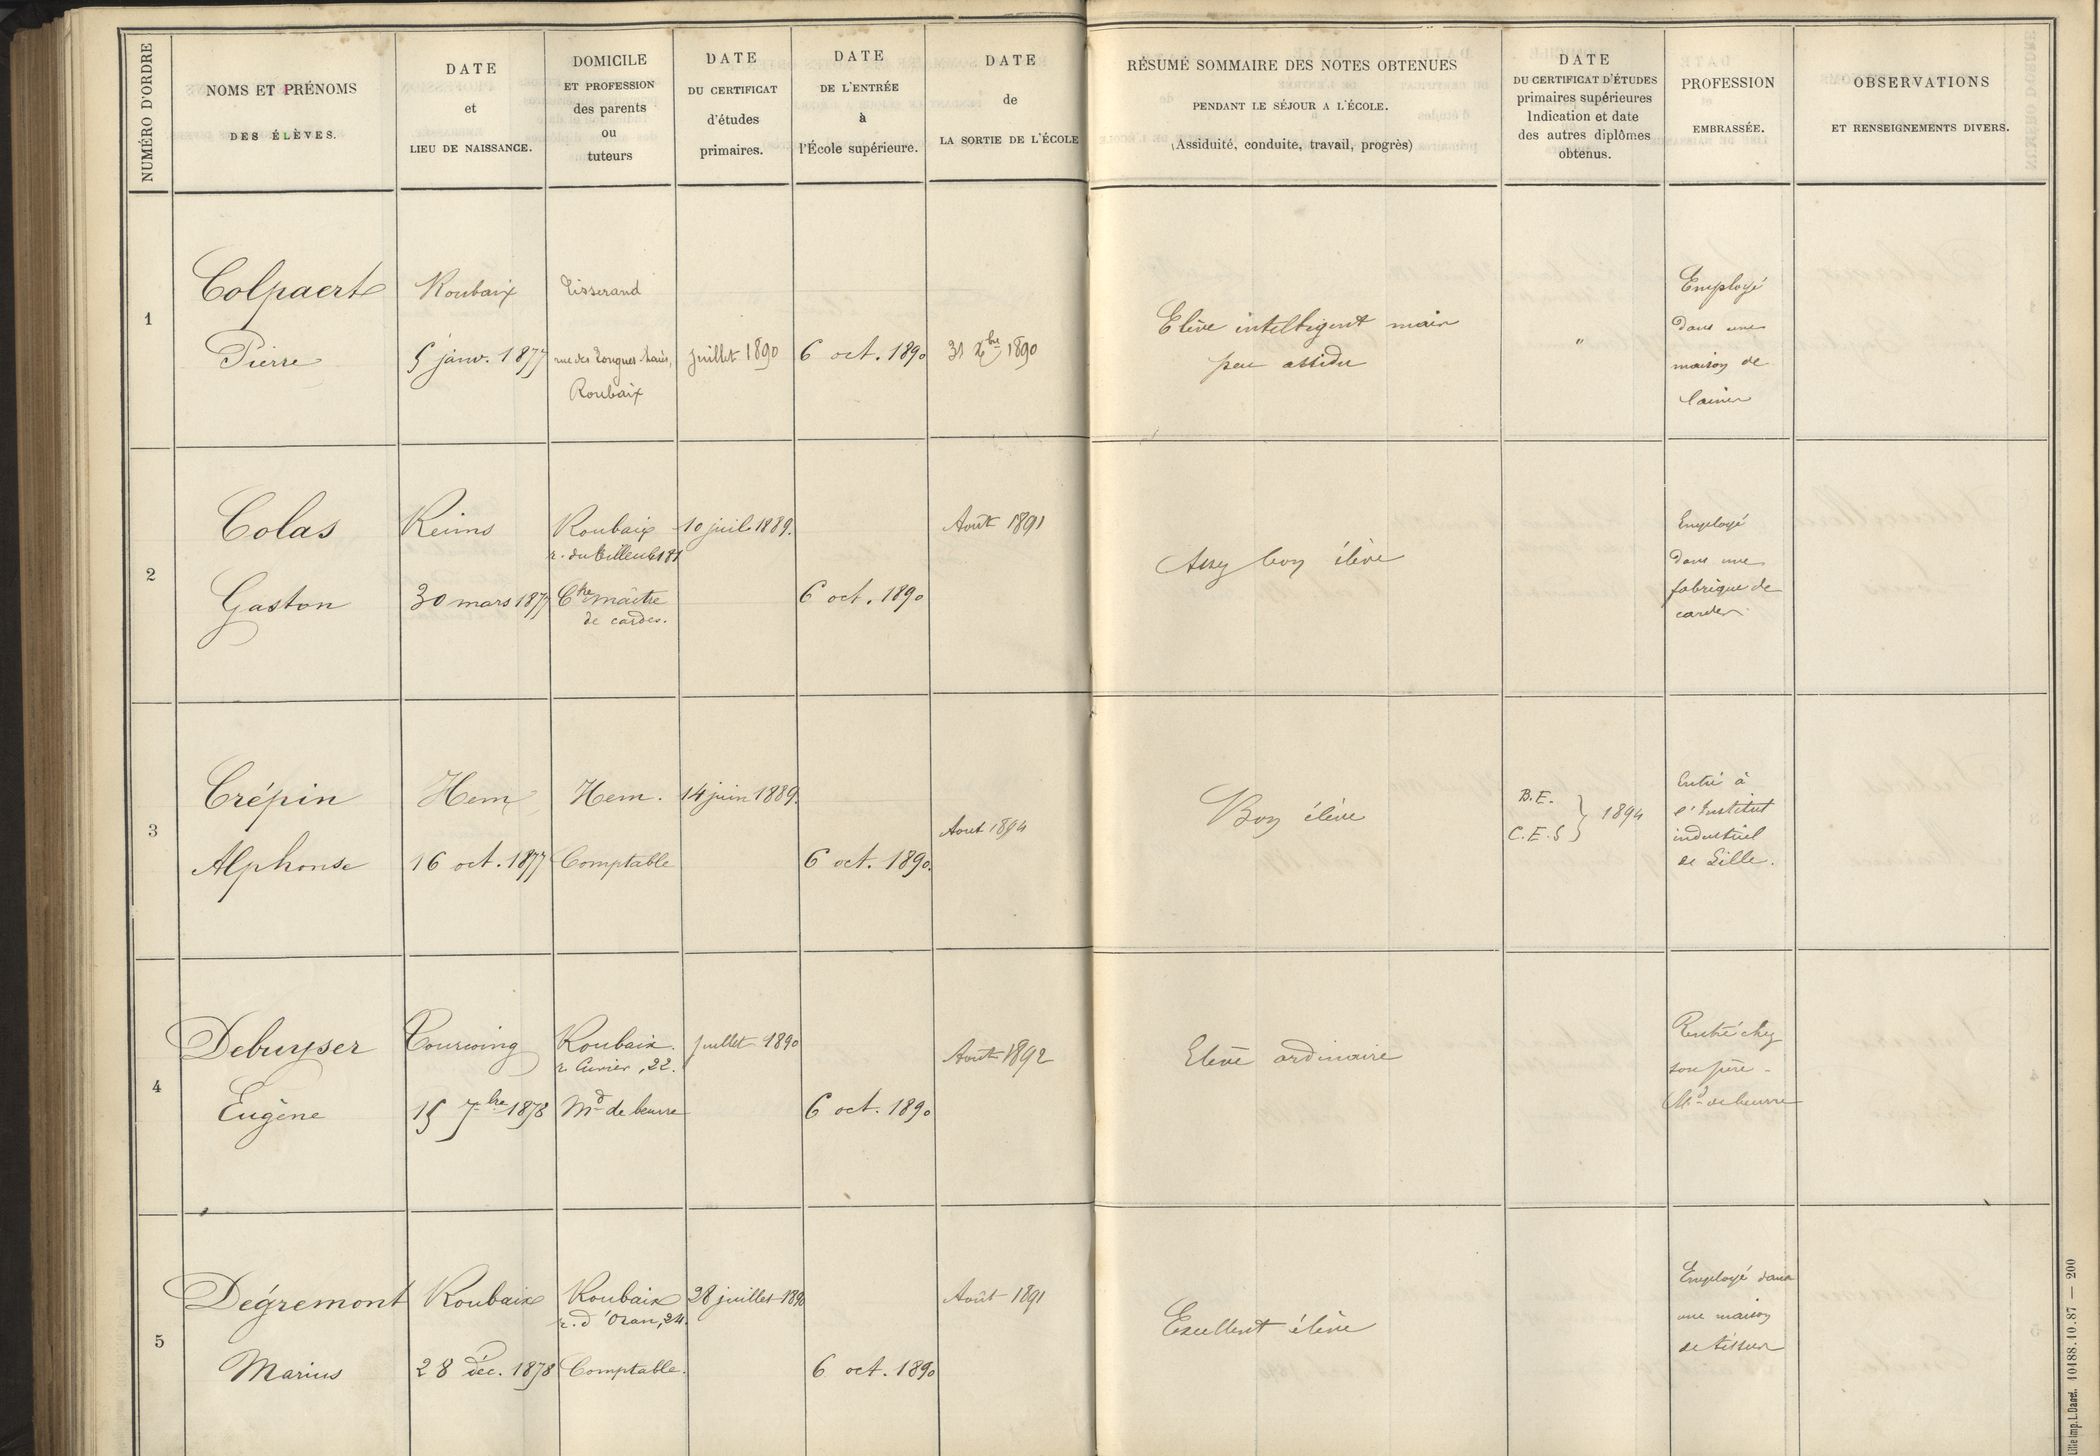 NUMÉRO D'ORDRE
NOMS ET PRÉNOMS
DES ÉLÈVES.
DATE
et
LIEU DE NAISSANCE.
DOMICILE
ET PROFESSION
des parents
ou
tuteurs
DATE
DU CERTIFICAT
d'études
primaires.
DATE
DE L'ENTRÉE
à
l'École supérieure.
DATE
de
LA SORTIE DE L'ÉCOLE
RÉSUMÉ SOMMAIRE DES NOTES OBTENUES
PENDANT LE SÉJOUR A L'ÉCOLE.
(Assiduité, conduite, travail, progrès)
DATE
DU CERTIFICAT D'ÉTUDES
primaires supérieures
Indication et date
des autres diplômes
obtenus.
PROFESSION
EMBRASSÉE.
OBSERVATIONS
ET RENSEIGNEMENTS DIVERS.
1
Colpaert
Pierre
Roubaix
5 janv. 1877
Tisserand
rue des Longues haies,
Roubaix
juillet 1890
6 oct. 1890
31 Xbre 1890
Elève intelligent mais
peu assidu
"
Employé
dans une
maison de
laines
2
Colas
Gaston
Reims
30 mars 1877
Roubaix
r. du tilleul 181
Ctre maître
de cardes.
10 juil. 1889.
6 oct. 1890
Août 1891
Assez bon élève
Employé
dans une
fabrique de
cardes
3
Crépin
Alphonse
Hem
16 oct. 1877
Hem.
Comptable
14 juin 1889.
6 oct. 1890.
Aout 1894
Bon élève
B.E.
C.E.S
} 1894
Entré à
l'Institut
industriel
de Lille.
4
Debuyser
Eugène
Tourcoing
15 7bre 1878
Roubaix.
r. Cuvier, 22.
Md de beurre
juillet 1890
6 oct. 1890
Août 1892
Elève ordinaire
Rentré chez
son père -
Md de beurre
5
Dégremont
Marius
Roubaix
28 déc. 1878
Roubaix
r. d'Oran, 24.
Comptable.
28 juillet 1890
6 oct. 1890
Août 1891
Excellent élève
Employé dans
une maison
de tissus
Lille Imp. L. Danel. 10188.10.87 — 200